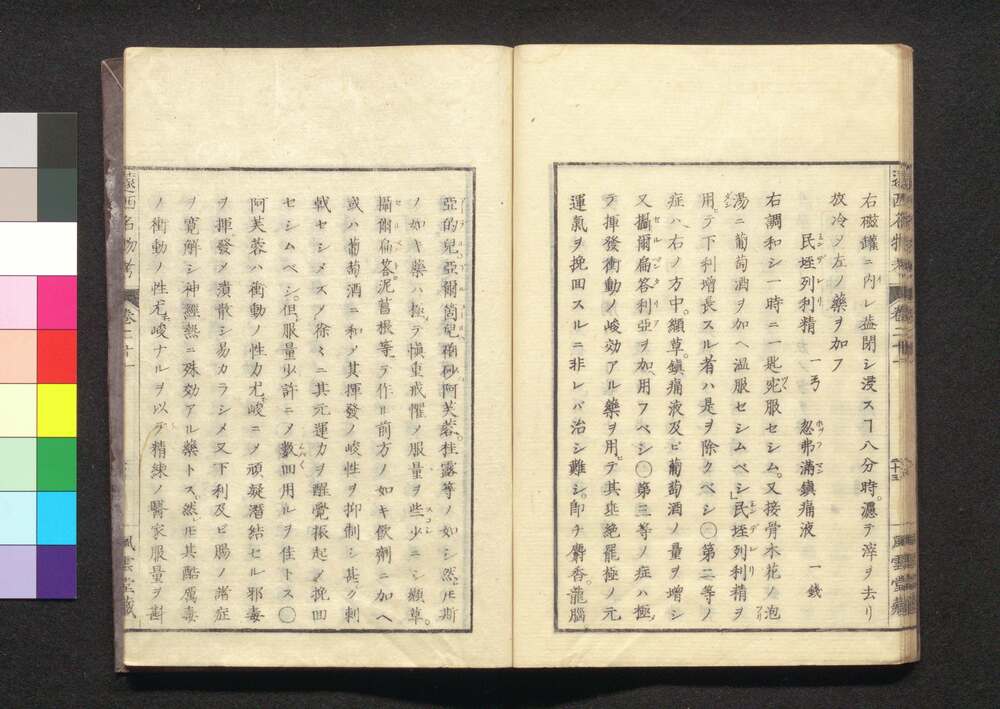 遠西名物考 卷二十一 風雲堂藏
右磁罐ニ内レ蓋閉シ浸スヿ八分時。濾テ滓ヲ去リ
放冷ヲ左ノ藥ヲ加フ
民垤列利精 一弓 忽弗滿鎮痛液 一錢
右調和シ一時ニ一匙兜服セシム。又接骨木花ノ泡
湯ニ葡萄酒ヲ加ヘ温服セシムベシ」民垤列利精ヲ
用テ下利増長スル者ハ是ヲ除クベシ〇第二等ノ
症ハ右ノ方中。纈草。鎮痛液及ビ葡萄酒ノ量ヲ増シ
又攝爾扁答利亞ヲ加用フベシ〇第三等ノ症ハ極
テ揮發衝動ノ峻効アル藥ヲ用テ其垂絶罷極ノ元
運氣ヲ挽回スルニ非レバ治シ難シ。即チ麝香。龍腦
亞的兒亞爾箇兒硇砂阿芙蓉。桂露等ノ如シ然𪜈斯
ノ如キ藥ハ極テ愼重戒懼ノ服量ヲ些少ニシ纈草。
攝爾扁答泥菖根等ヲ作ル前方ノ如キ飲劑ニ加ヘ
或ハ葡萄酒ニ和ノ其揮發ノ峻性ヲ抑制シ甚ク刺
戟セシメスノ徐々ニ其元運力ヲ醒覺振起ノ挽回
セシムベシ。但服量少許ニノ數回用ルヲ佳トス〇
阿芙蓉ハ衝動ノ性力尤峻ニノ頑凝潛結セル邪毒
ヲ揮發ノ潰散シ易カラシメ又下利及ビ腸ノ滯症
ヲ寛解シ神經熱ニ殊効アル藥トス。然𪜈其酷厲毒
ノ衝動ノ性尤峻ナルヲ以テ精練ノ醫家服量ヲ斟
遠西名物考 卷二十一 風雲堂藏